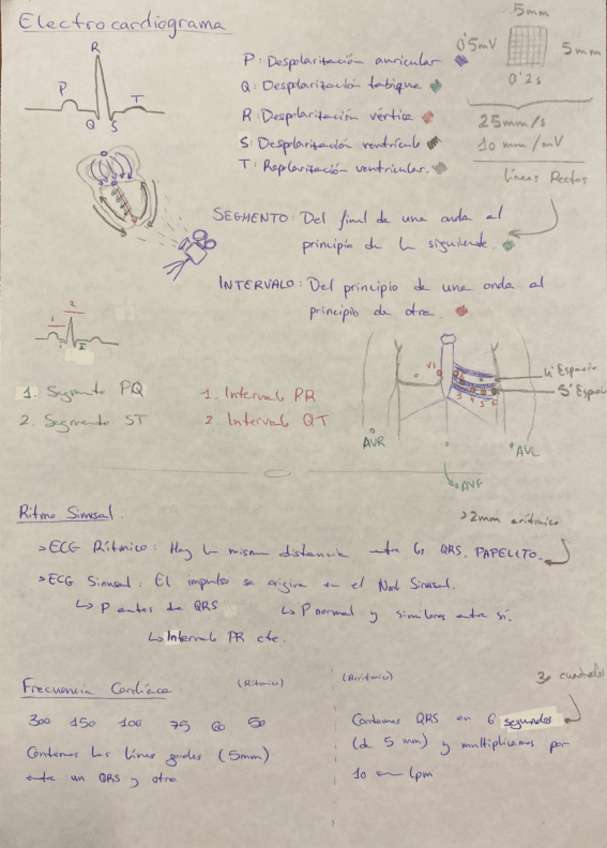 Electrocardiograma
R
P
T
Q
S
P: Despolarización auricular
Q: Despolarización tabique
R: Despolarización vértice
S: Despolarización ventrículo
T: Replarización ventricular.
5mm
0'5mV
5mm
0'2s
25mm/s
10 mm/mV
líneas Rectas
SEGMENTO: Del final de una onda al
principio de la siguiente.
INTERVALO: Del principio de una onda al
principio de otra.
2
1
1. Segmento PQ
2. Segmento ST
1. Intervalo PR
2. Intervalo QT
V1
3 4 5 6
4º Espacio
5º Espacio
AVR
AVL
AVF
Ritmo Sinusal
>2mm arrítmico
>ECG Rítmico: Hay la misma distancia entre los QRS. PAPELITO.
>ECG Sinusal: El impulso se origina en el Nodo Sinusal.
↳ P antes de QRS
↳ P normal y similares entre sí.
↳ Intervalo PR cte.
Frecuencia Cardíaca
(Rítmico)
300 150 100 75 60 50
Contamos las líneas gordas (5mm)
entre un QRS y otro
(Arrítmico)
30 cuadrados
Contamos QRS en 6 segundos
(de 5 mm) y multiplicamos por
10 lpm